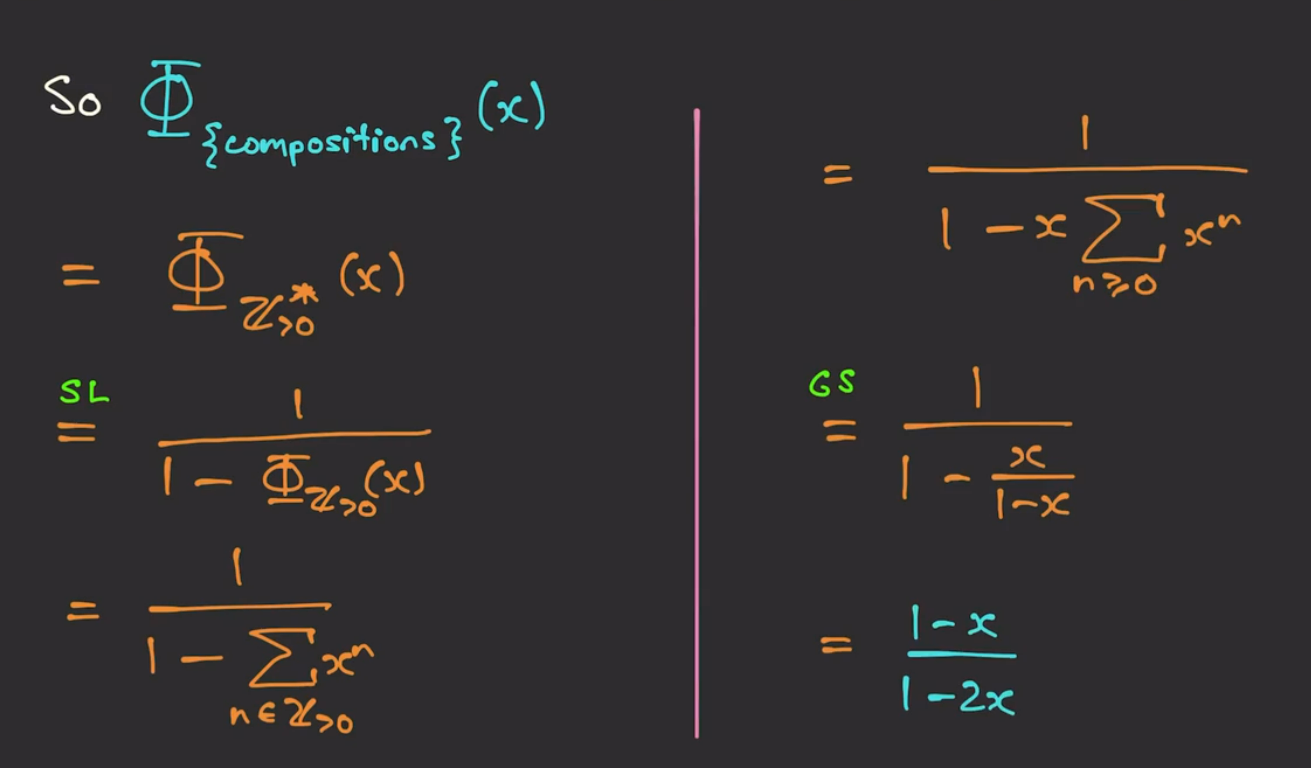 So Φ_{compositions}(x)
= Φ_ℤ>0*(x)
SL
= 1 / (1 − Φ_ℤ>0(x))
= 1 / (1 − ∑_{n∈ℤ>0} xⁿ)
= 1 / (1 − x ∑_{n⩾0} xⁿ)
GS
= 1 / (1 − x/(1−x))
= (1−x) / (1−2x)